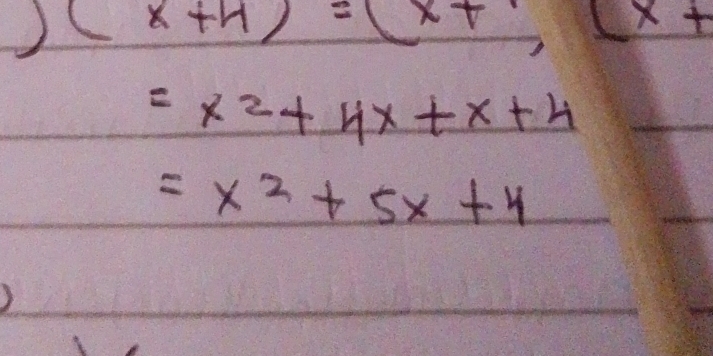 ) ( x + 4 ) = ( x + , ( x +
= x² + 4x + x + 4
= x² + 5x + 4
)